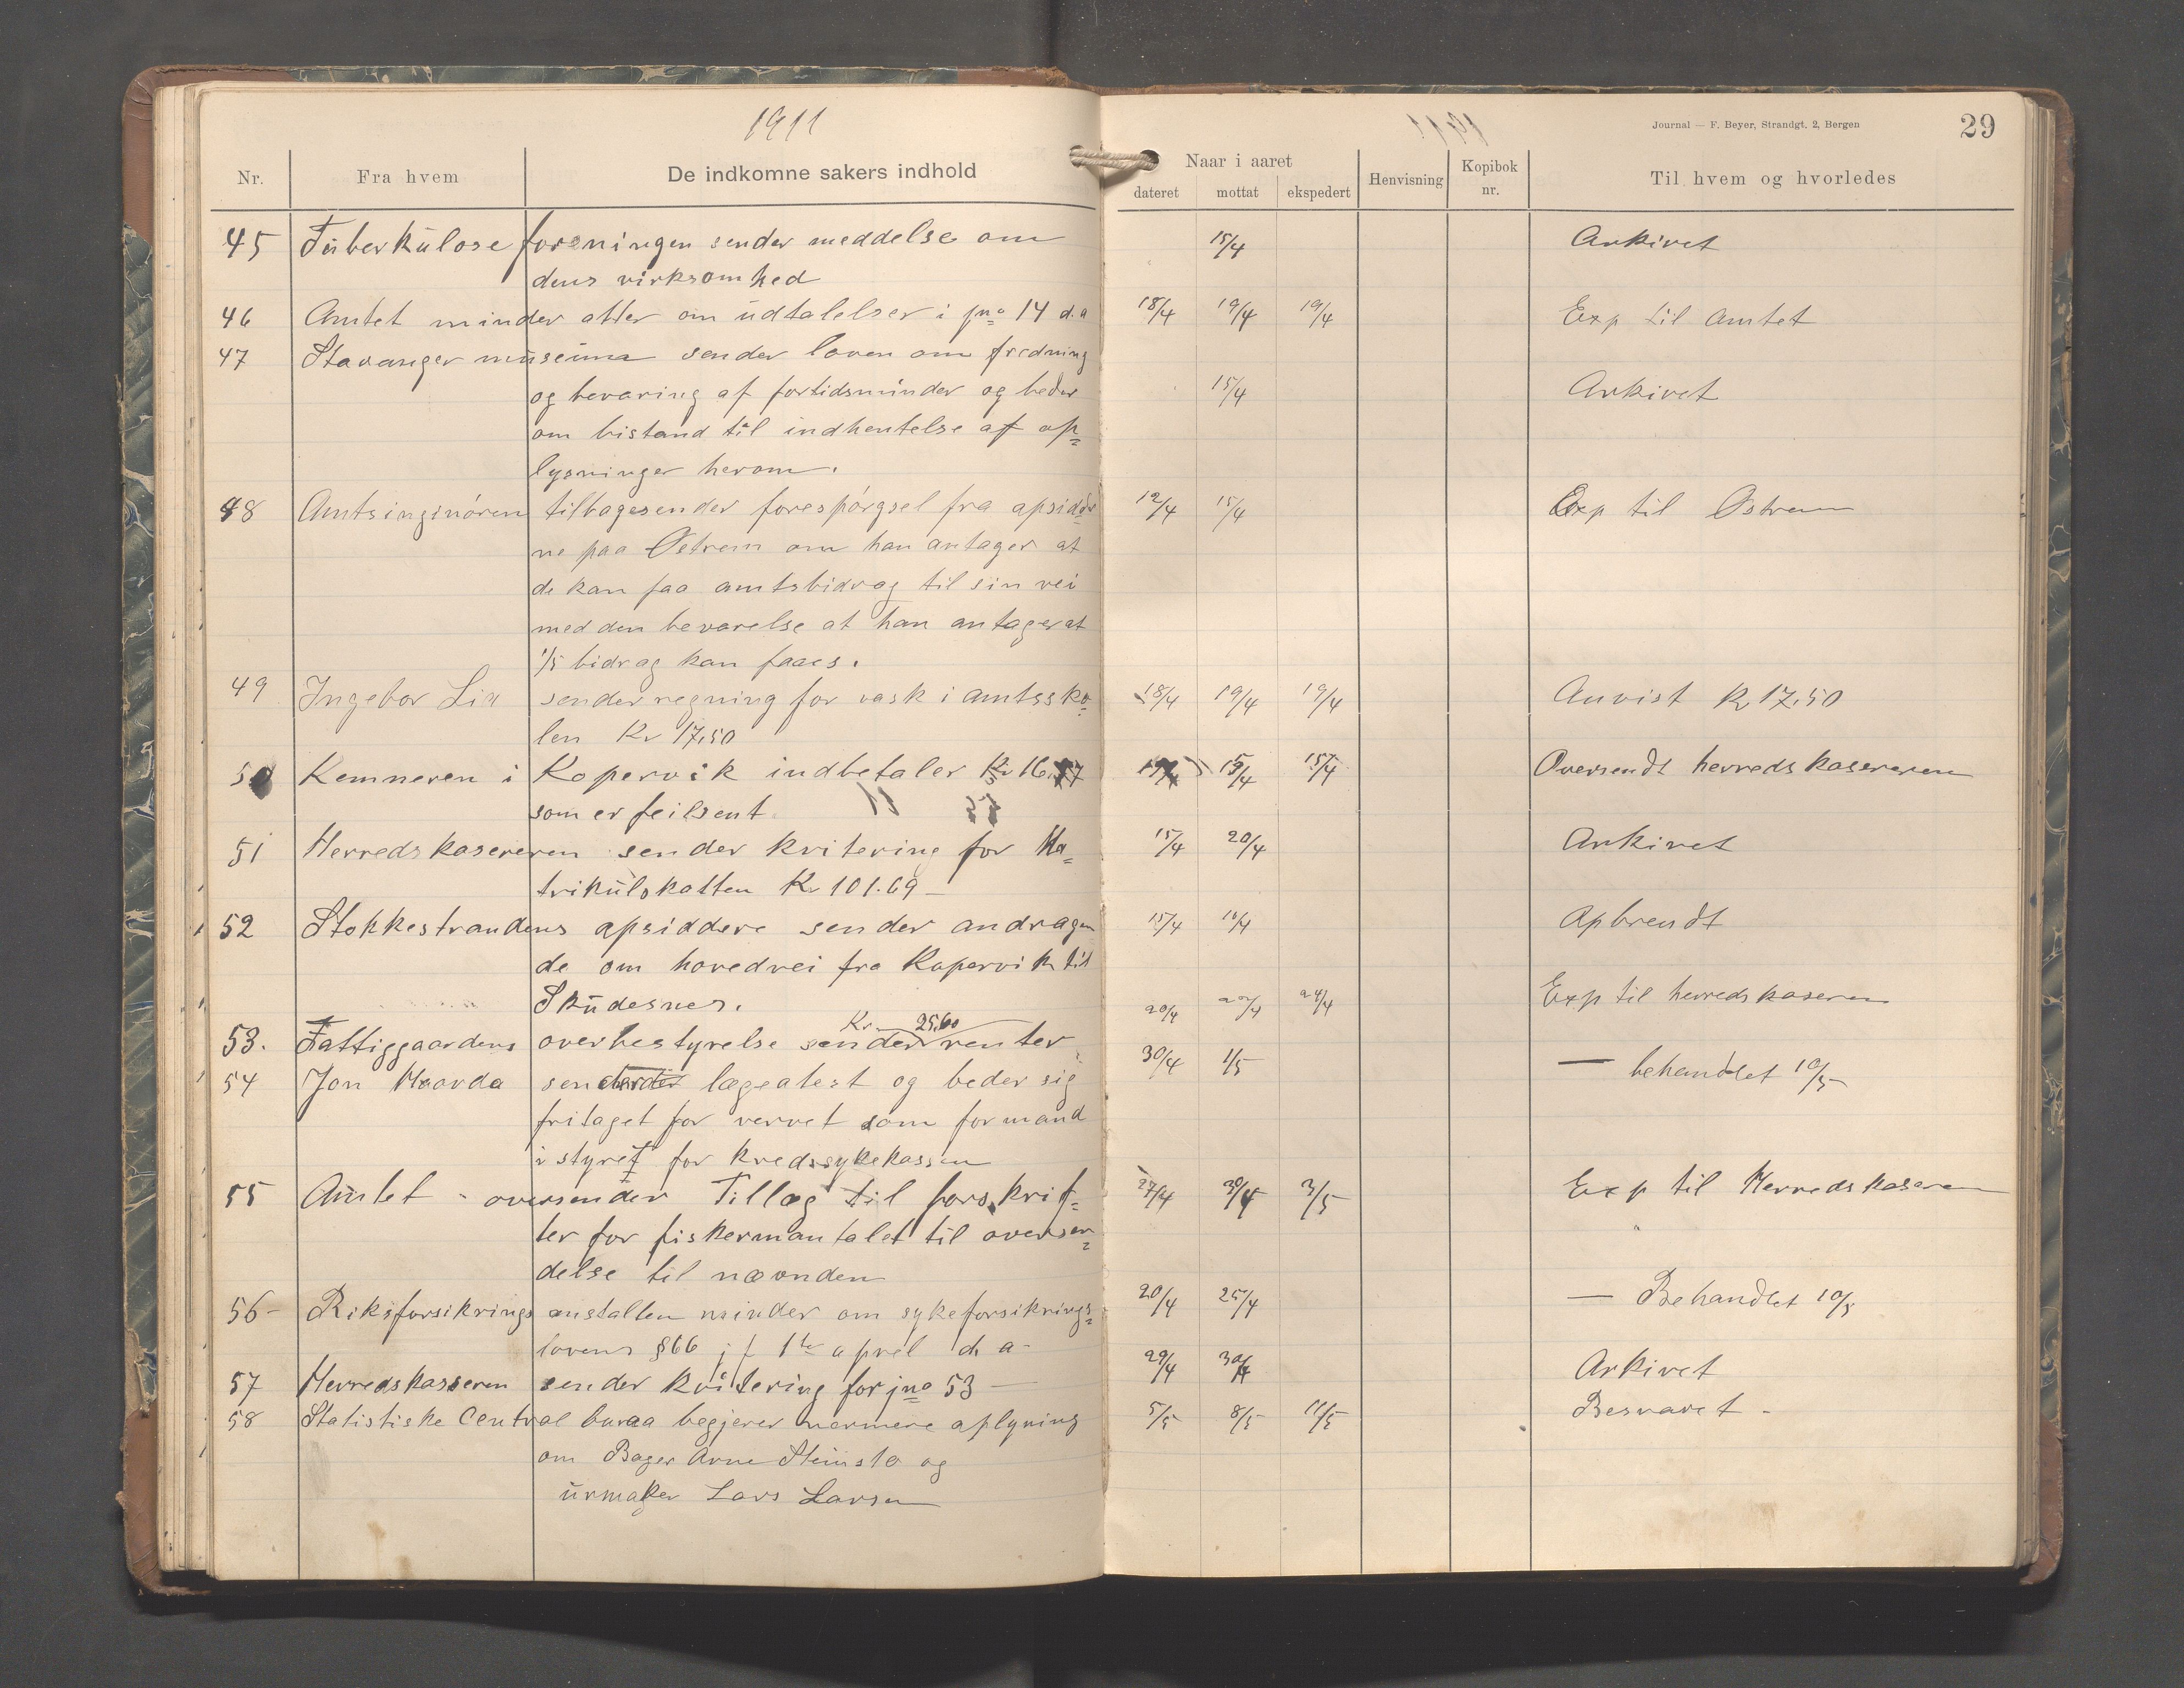 1911
Journal — F. Beyer, Strandgt. 2, Bergen
29
Nr. Fra hvem De indkomne sakers indhold Naar i aaret dateret mottat ekspedert Henvisning Kopibok nr. Til hvem og hvorledes
45 Tuberkulose foreningen sender meddelse om 15/4 Arkivet
dens virksomhed
46 Amtet minder atter om udtalelser i jno 14 d.a 18/4 19/4 19/4 Exp til Amtet
47 Stavanger museum sender loven om fredning
og bevaring af fortidsminder og beder 15/4 Arkivet
om bistand til indhentelse af op=
lysninger herom.
48 Amtsinginøren tilbagesender forespørgsel fra opsidde= 12/4 15/4 Exp til Østrem
ne paa Østrem om han antager at
de kan faa amtsbidrag til sin vei
med den bevarelse at han antager at
1/5 bidrag kan faaes.
49 Ingebor Lia sender regning for vask i amtssko= 18/4 19/4 19/4 Anvist Kr 17,50
len Kr 17,50
50 Kemneren i Kopervik indbetaler Kr 16.77 15/4 15/4 Oversendt herredskasereren
som er feilsent.
51 Herredskasereren sender kvitering for Ma= 15/4 20/4 Arkivet
trikulskatten Kr 101.69 —
52 Stokkestrandens opsiddere sender andragen 15/4 18/4 Opbrendt
de om hovedvei fra Kopervik til
Skudesnes.
53. Fattiggaardens overbestyrelse sender Kr 25.60 renter 20/4 22/4 24/4 Exp til herredskaseren
54 Jon Haavda sender lægeatest og beder sig 30/4 1/5 — behandlet 10/5
fritaget for vervet som formand
i styret for kredssykekassen
55 Amtet - oversender Tillæg til forskrif= 27/4 30/4 3/5 Exp til Herredskaseren
ter for fiskermantalet til oversen=
delse til nævnden
56 - Riksforsikrings anstalten minder om sykeforsikrings= 20/4 25/4 — Behandlet 10/5
lovens § 66 jf 1ste april d. a -
57 Herredskasseren sender kvitering for jno 53 — 29/4 30/4 Arkivet
58 Statistiske Central buraa begjerer nærmere oplysning 5/5 8/5 11/5 Besvaret -
om Bager Arne Steinslo og
urmaker Lars Larsen